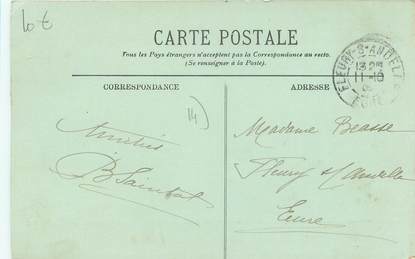 10 €
CARTE POSTALE
Tous les Pays étrangers n'acceptent pas la Correspondance au recto.
(Se renseigner à la Poste).
CORRESPONDANCE
ADRESSE
FLEURY-S-ANDELLE
11-10
EURE
14
Amitiés
Madame Beasse
Fleury s/ Andelle
Eure